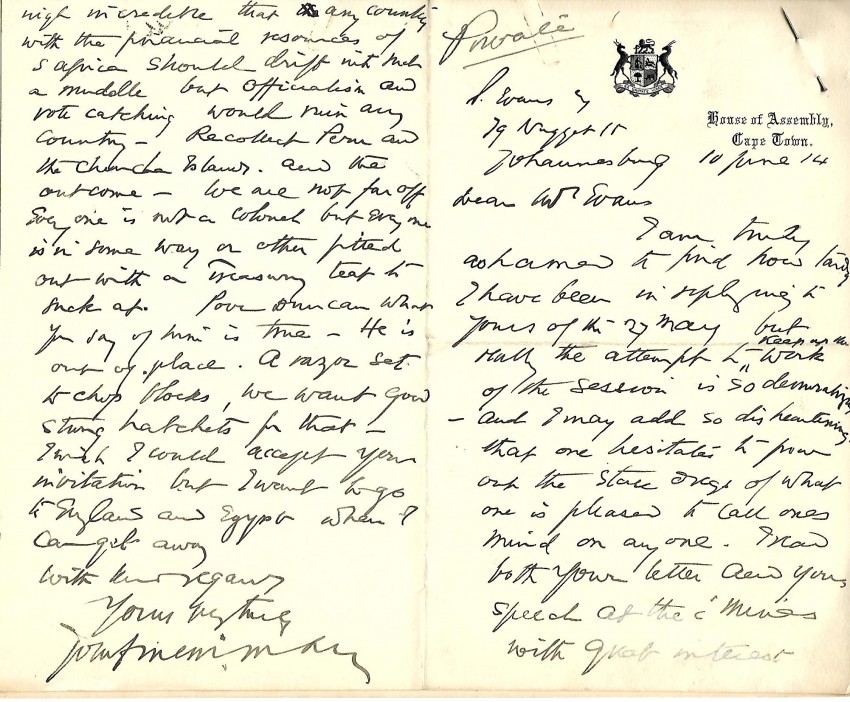 Private
House of Assembly,
Cape Town.
S. Evans Esq
79 Nugget St
Johannesburg 10 June 14
Dear Mr Evans
I am truly
ashamed to find how tardy
I have been in replying to
yours of the 27 May but
really the attempt to keep up the work
of the session is so demoralizing
– and I may add so disheartening
that one hesitates to pour
out the stale dregs of what
one is pleased to call ones
mind on any one. I read
both your letter and your
speech at the C Mines
with great interest
nigh incredible that any country
with the financial resources of
S Africa should drift into such
a muddle but officialism and
vote catching would ruin any
country – Recollect Peru and
the Chincha Islands. and the
outcome – We are not far off
Every one is not a Colonel but every one
is in some way or other fitted
out with a Treasury teat to
suck at. Poor Duncan what
you say of him is true – He is
out of place. A razor set
to chop blocks, we want good
strong hatchets for that –
I wish I could accept your
invitation but I want to go
to England and Egypt when I
can get away
with kind regards
Yours very truly
John X Merriman